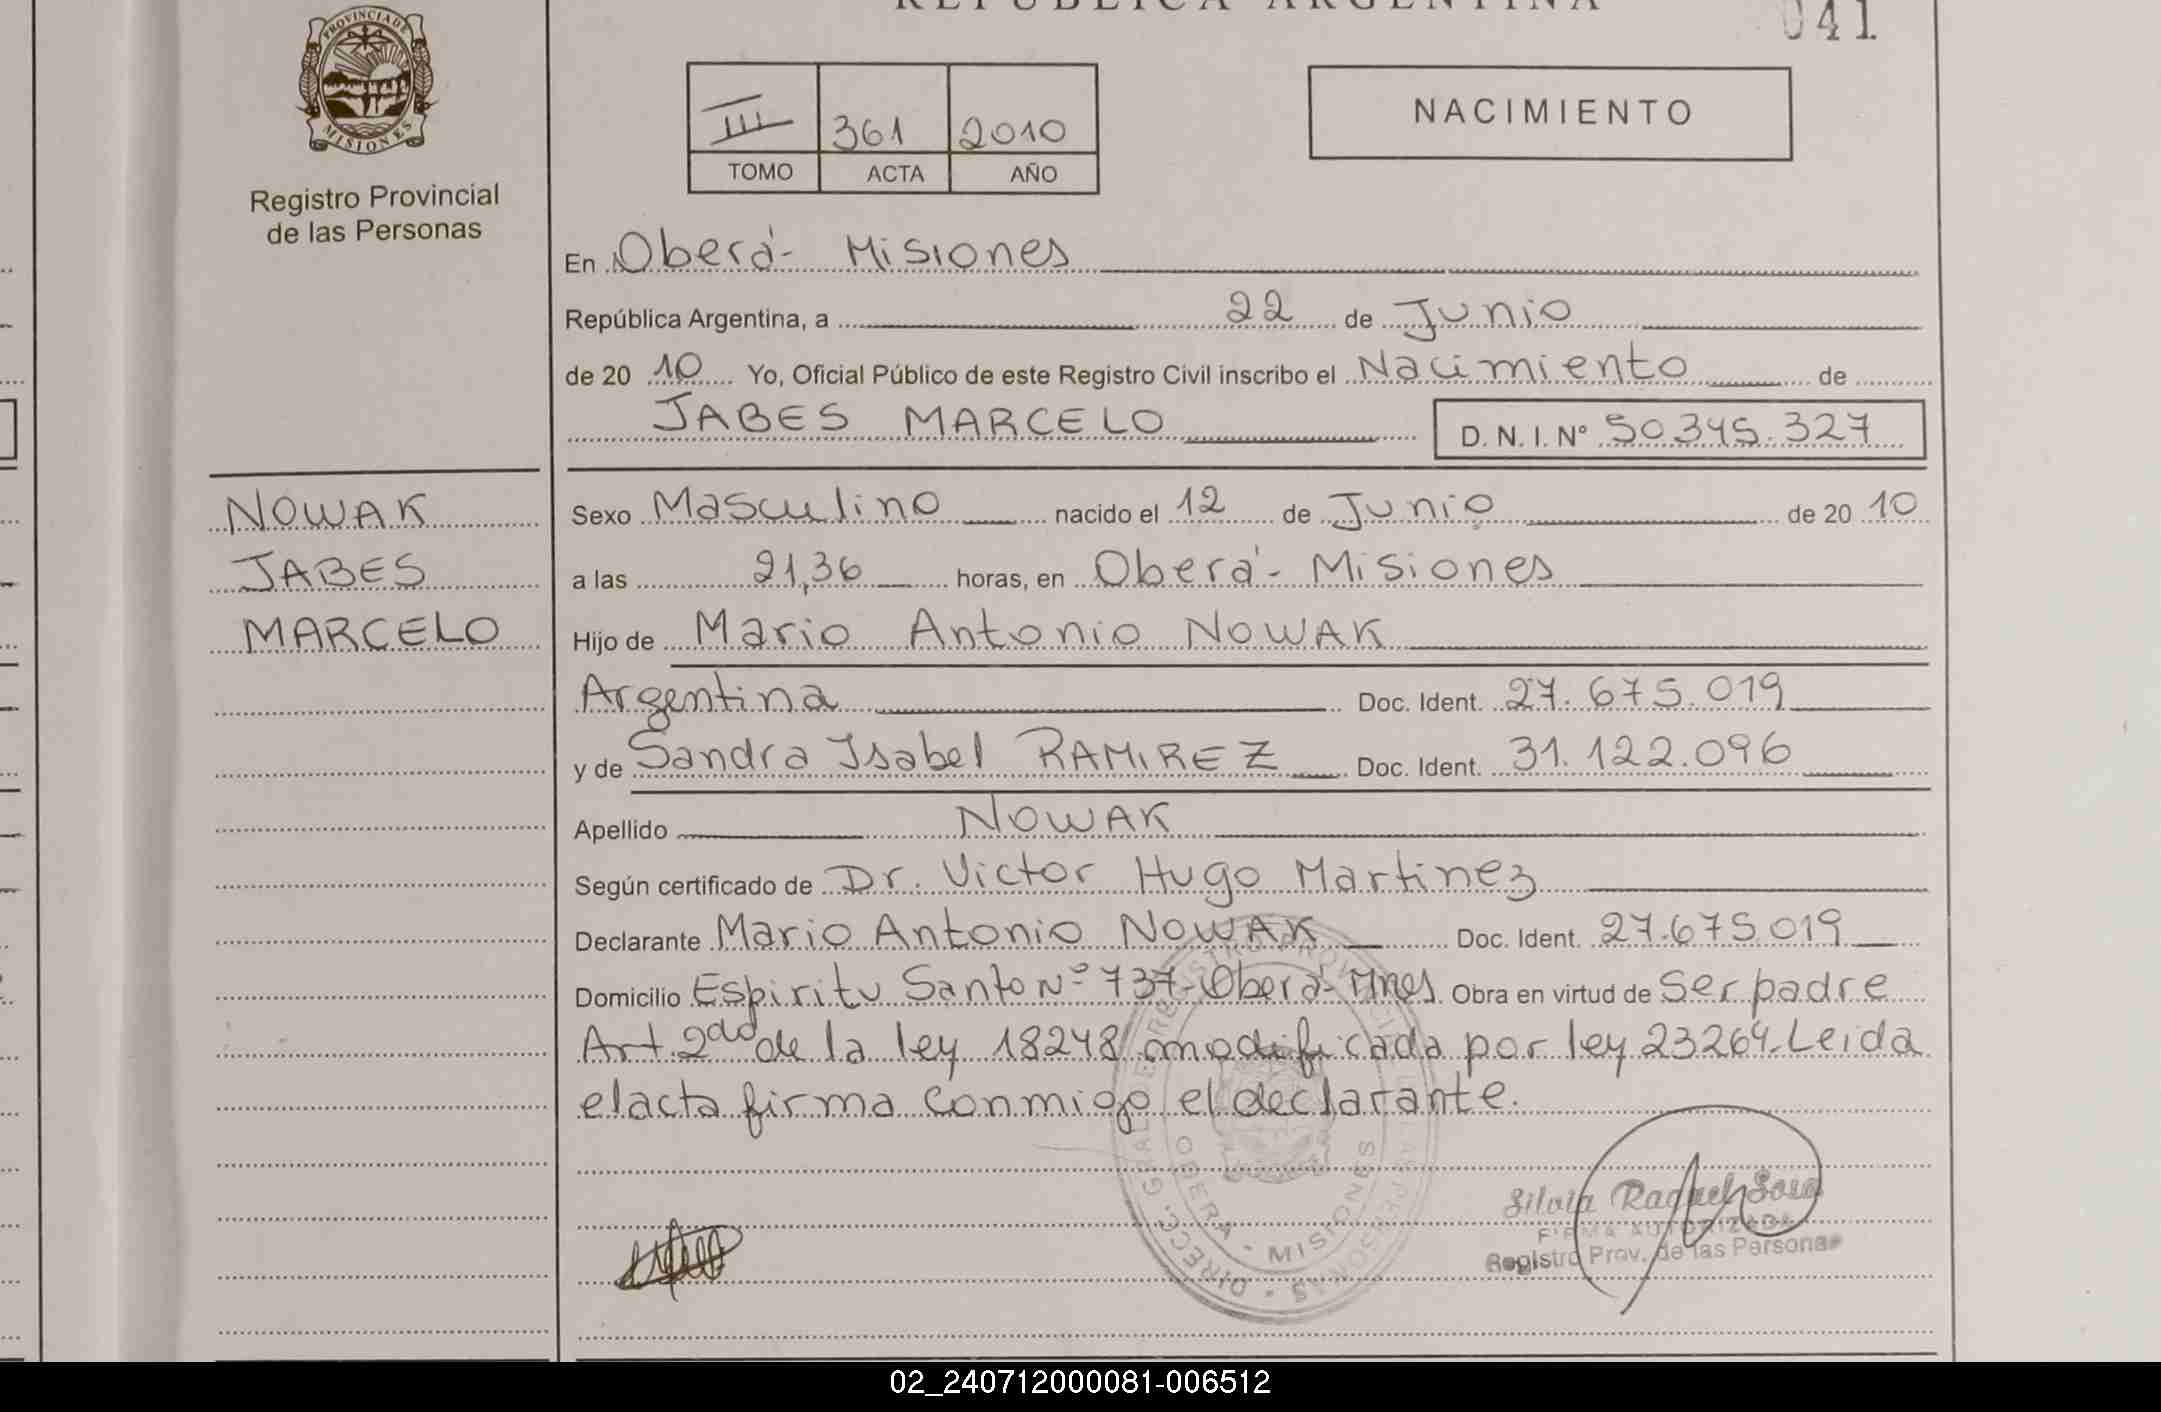 REPUBLICA ARGENTINA
041
PROVINCIA DE MISIONES
Registro Provincial
de las Personas
III 361 2010
TOMO ACTA AÑO
NACIMIENTO
En Oberá - Misiones
República Argentina, a 22 de Junio
de 20 10 Yo, Oficial Público de este Registro Civil inscribo el Nacimiento de
JABES MARCELO D. N. I. Nº 50.345.327
NOWAK
JABES
MARCELO
Sexo Masculino nacido el 12 de Junio de 20 10
a las 21,36 horas, en Oberá - Misiones
Hijo de Mario Antonio NOWAK
Argentina Doc. Ident. 27.675.019
y de Sandra Isabel RAMIREZ Doc. Ident. 31.122.096
Apellido NOWAK
Según certificado de Dr. Victor Hugo Martinez
Declarante Mario Antonio NOWAK Doc. Ident. 27.675.019
Domicilio Espiritu Santo Nº 737 - Oberá - Mnes Obra en virtud de Ser padre
Art. 2do de la ley 18248 modificada por ley 23264 - Leida
el acta firma conmigo el declarante.
OBERA - MISIONES
Silvia Raquel Sosa
FIRMA AUTORIZADA
Registro Prov. de las Personas
02_240712000081-006512